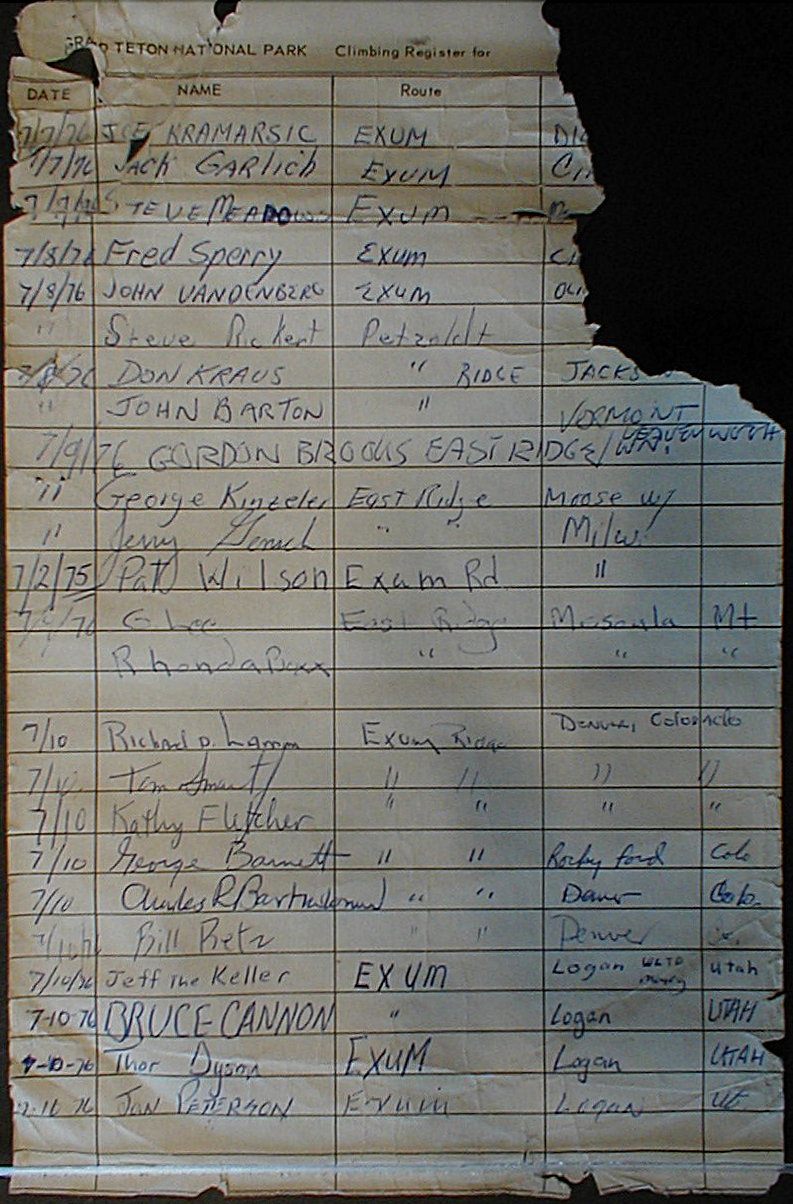 GRAND TETON NATIONAL PARK Climbing Register for
DATE NAME Route
7/7/76 JOE KRAMARSIC EXUM
7/7/76 JACK GARlich EXUM
7/7/76 STEVE MEADOWS EXUM
7/8/76 Fred Sperry Exum
7/8/76 JOHN VANDENBERG Exum
" Steve Rickert Petzoldt
7/8/76 DON KRAUS " RIDGE JACKSON
" JOHN BARTON " VERMONT
7/9/76 GORDON BROOKS EAST RIDGE/ WN.
" George Kinzeler East Ridge Moose wy
" Jerry " " Milw.
7/2/75 Pat Wilson Exum Rd "
76 G Lee East Ridge Missoula Mt
Rhonda " " "
7/10 Richard D. Lamm Exum Ridge Denver, Colorado
7/10 Tom " " " "
7/10 Kathy Fletcher " " " "
7/10 George Barnett " " Rocky Ford Colo
7/10 Charles R Bartholomew " " Denver Colo.
7/10/76 Bill Betz " " Denver
7/10/76 Jeff the Keller EXUM Logan Utah
7-10-76 BRUCE CANNON " Logan UTAH
7-10-76 Thor Dyson EXUM Logan UTAH
76 JON PETERSON Exum Logan Ut